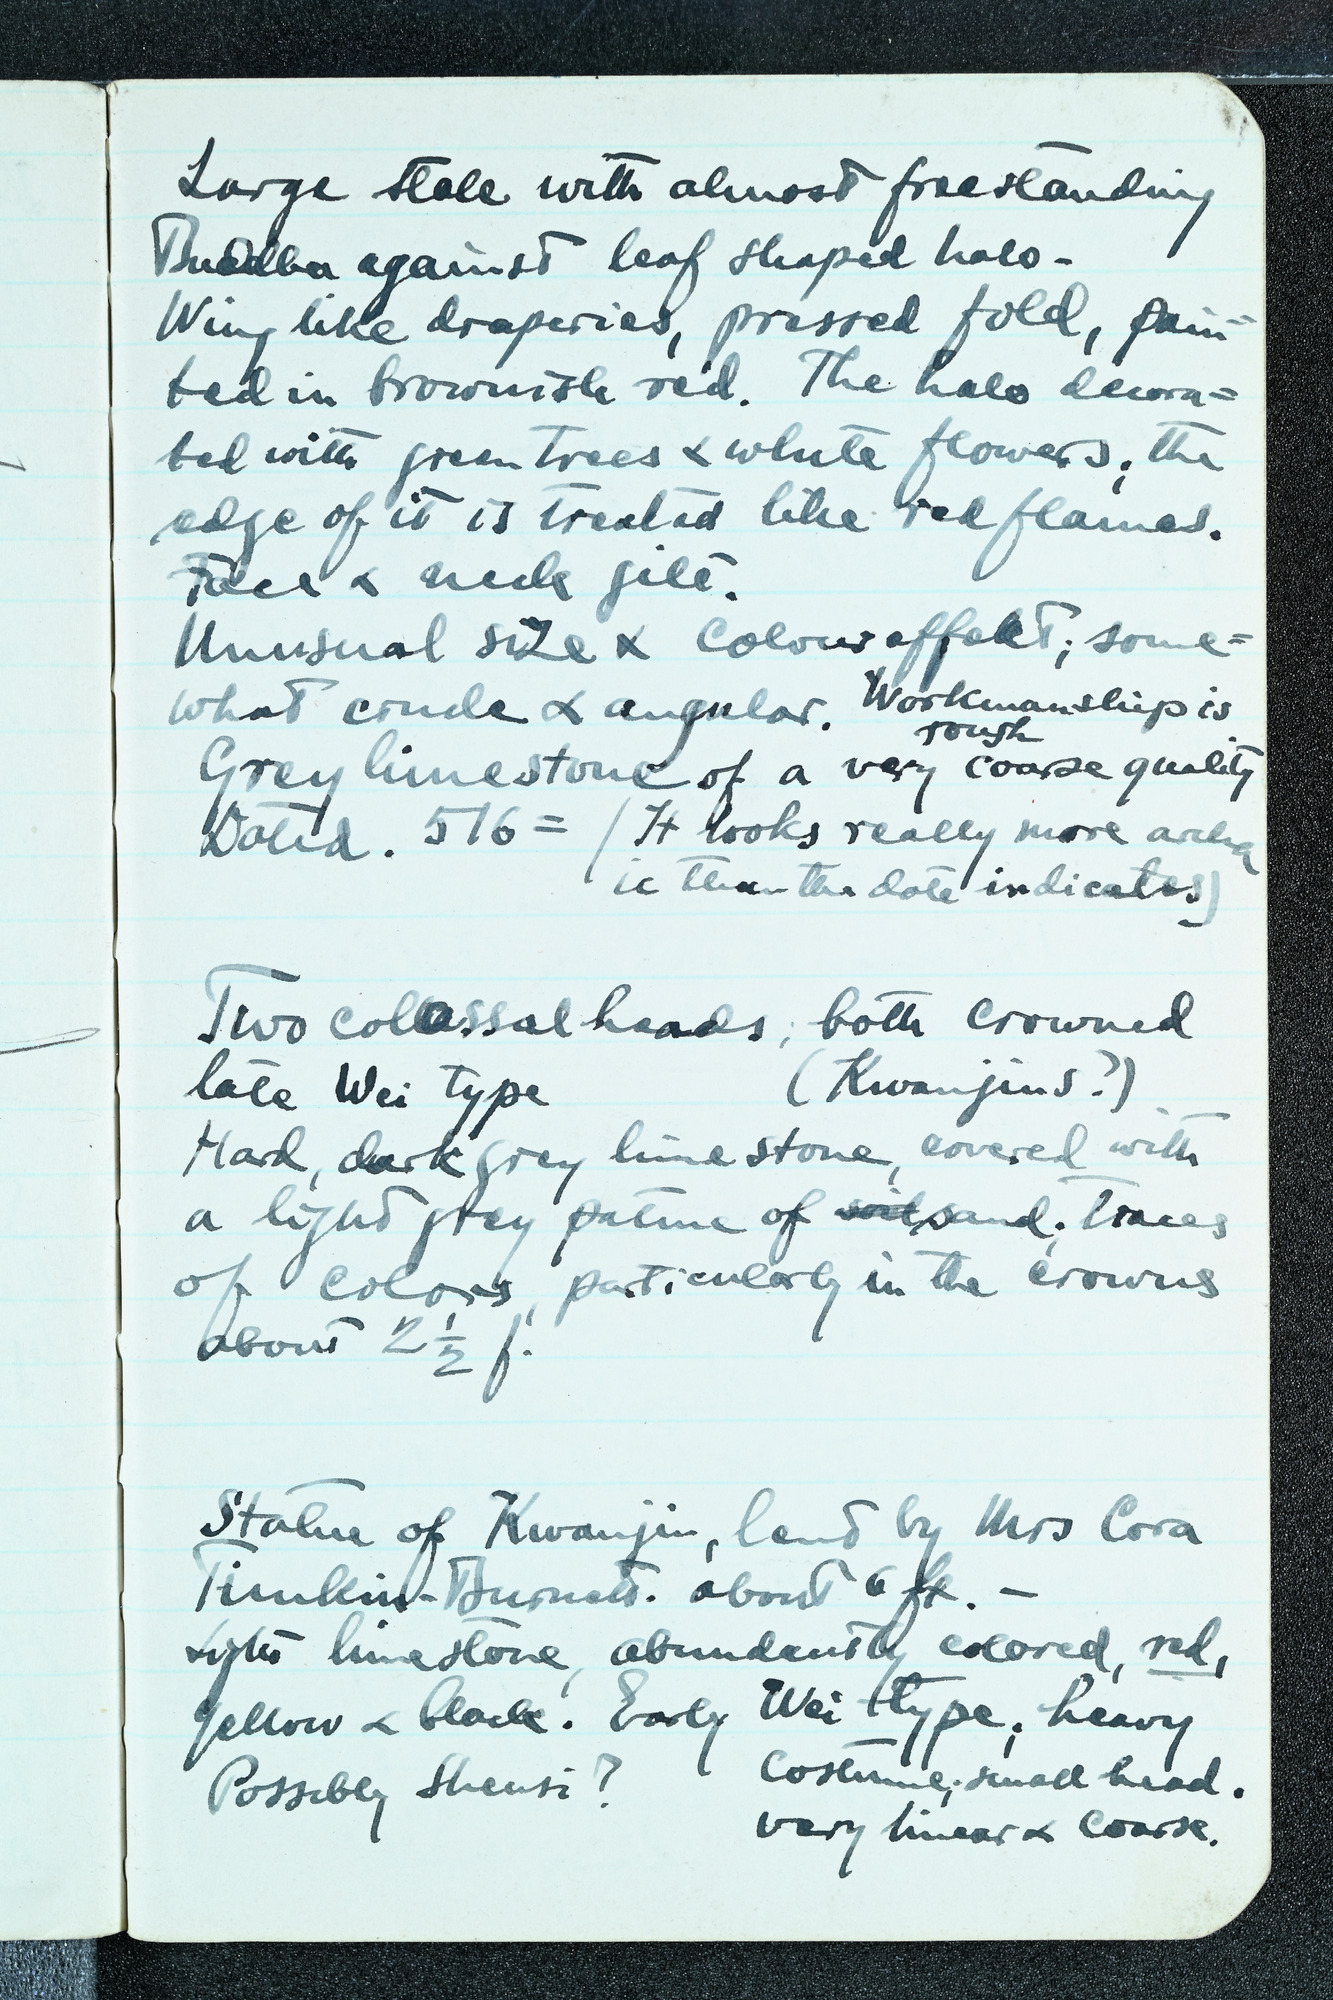 Large stele with almost freestanding
Buddha against leaf shaped halo-
Wing like draperies, pressed fold, pain=
ted in brownish red. The halo decora=
ted with green trees & white flowers; the
edge of it is treated like red flames.
Face & neck gilt.
Unusual size & Colour effekt; some=
what crude & angular. Workmanship is
rough
Grey limestone of a very coarse quality
Dated. 516= (It looks really more archa
ic than the date indicates)
Two colossal heads, both crowned
late Wei type (Kwanjins?)
Hard, dark grey lime stone, covered with
a light grey patine of sand; traces
of colors, particularly in the crowns
about 2 1/2 f.
Statue of Kwanjin, lend by Mrs Cora
Timkin-Burnett. about 6 ft. -
Light limestone, abundantly colored, red,
yellow & black. Early Wei type; heavy
Possibly Shensi? Costume; small head.
very linear & coarse.